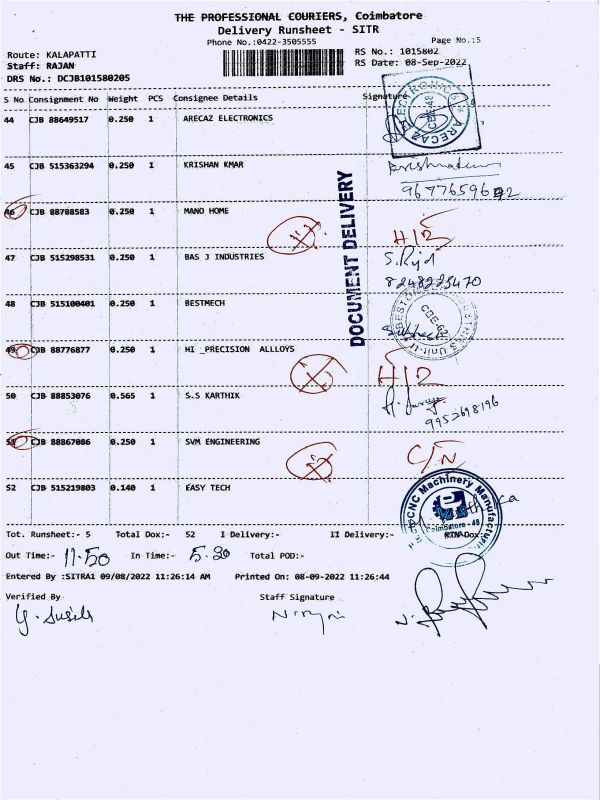 THE PROFESSIONAL COURIERS, Coimbatore
Delivery Runsheet - SITR
Phone No.:0422-3505555
Page No.:5
Route: KALAPATTI
RS No.: 1015802
Staff: RAJAN
RS Date: 08-Sep-2022
DRS No.: DCJB101580205
S No Consignment No Weight PCS Consignee Details Signature
44 CJB 88649517 0.250 1 ARECAZ ELECTRONICS
45 CJB 515363294 0.250 1 KRISHAN KMAR
46 CJB 88708503 0.250 1 MANO HOME
H/R
47 CJB 515298531 0.250 1 BAS J INDUSTRIES
8248223470
48 CJB 515100401 0.250 1 BESTMECH
49 CJB 88776877 0.250 1 HI _PRECISION ALLLOYS
H/R
50 CJB 88853076 0.565 1 S.S KARTHIK
9952698196
51 CJB 88867086 0.250 1 SVM ENGINEERING
C/N
52 CJB 515219803 0.140 1 EASY TECH
DOCUMENT DELIVERY
CNC Machinery Manufacturing
Coimbatore - 48
Tot. Runsheet:- 5 Total Dox:- 52 I Delivery:- II Delivery:- RTN Dox:
Out Time:- 11.50 In Time:- 5.30 Total POD:-
Entered By :SITRA1 09/08/2022 11:26:14 AM Printed On: 08-09-2022 11:26:44
Verified By Staff Signature